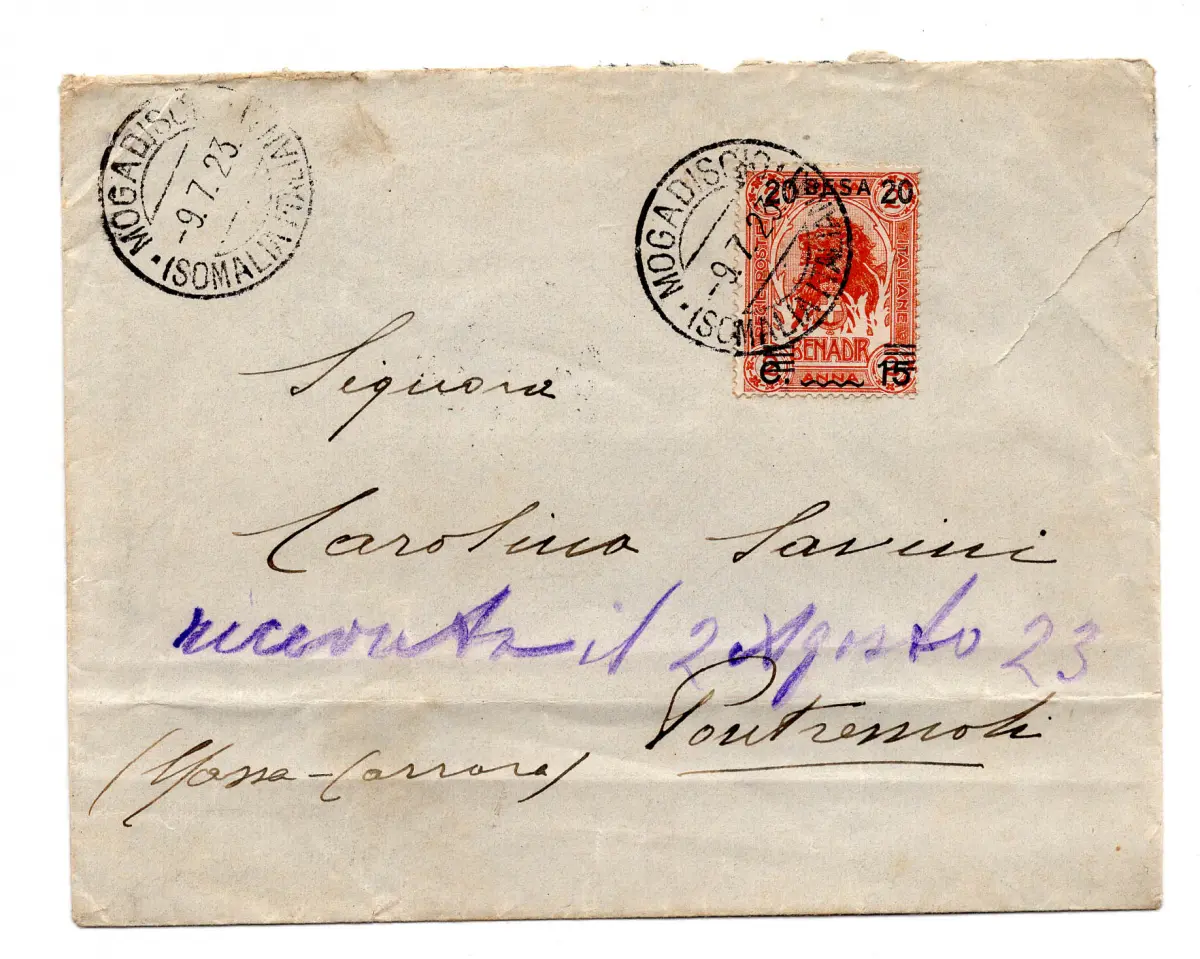 MOGADISCIO
-9.7.23
(SOMALIA ITALIANA)
MOGADISCIO
-9.7.23
(SOMALIA ITALIANA)
20 BESA 20
POSTE
ITALIANE
BENADIR
ANNA
C. 15
Signora
Carolina Savini
ricevuta il 2 Agosto 23
Pontremoli
(Massa-Carrara)